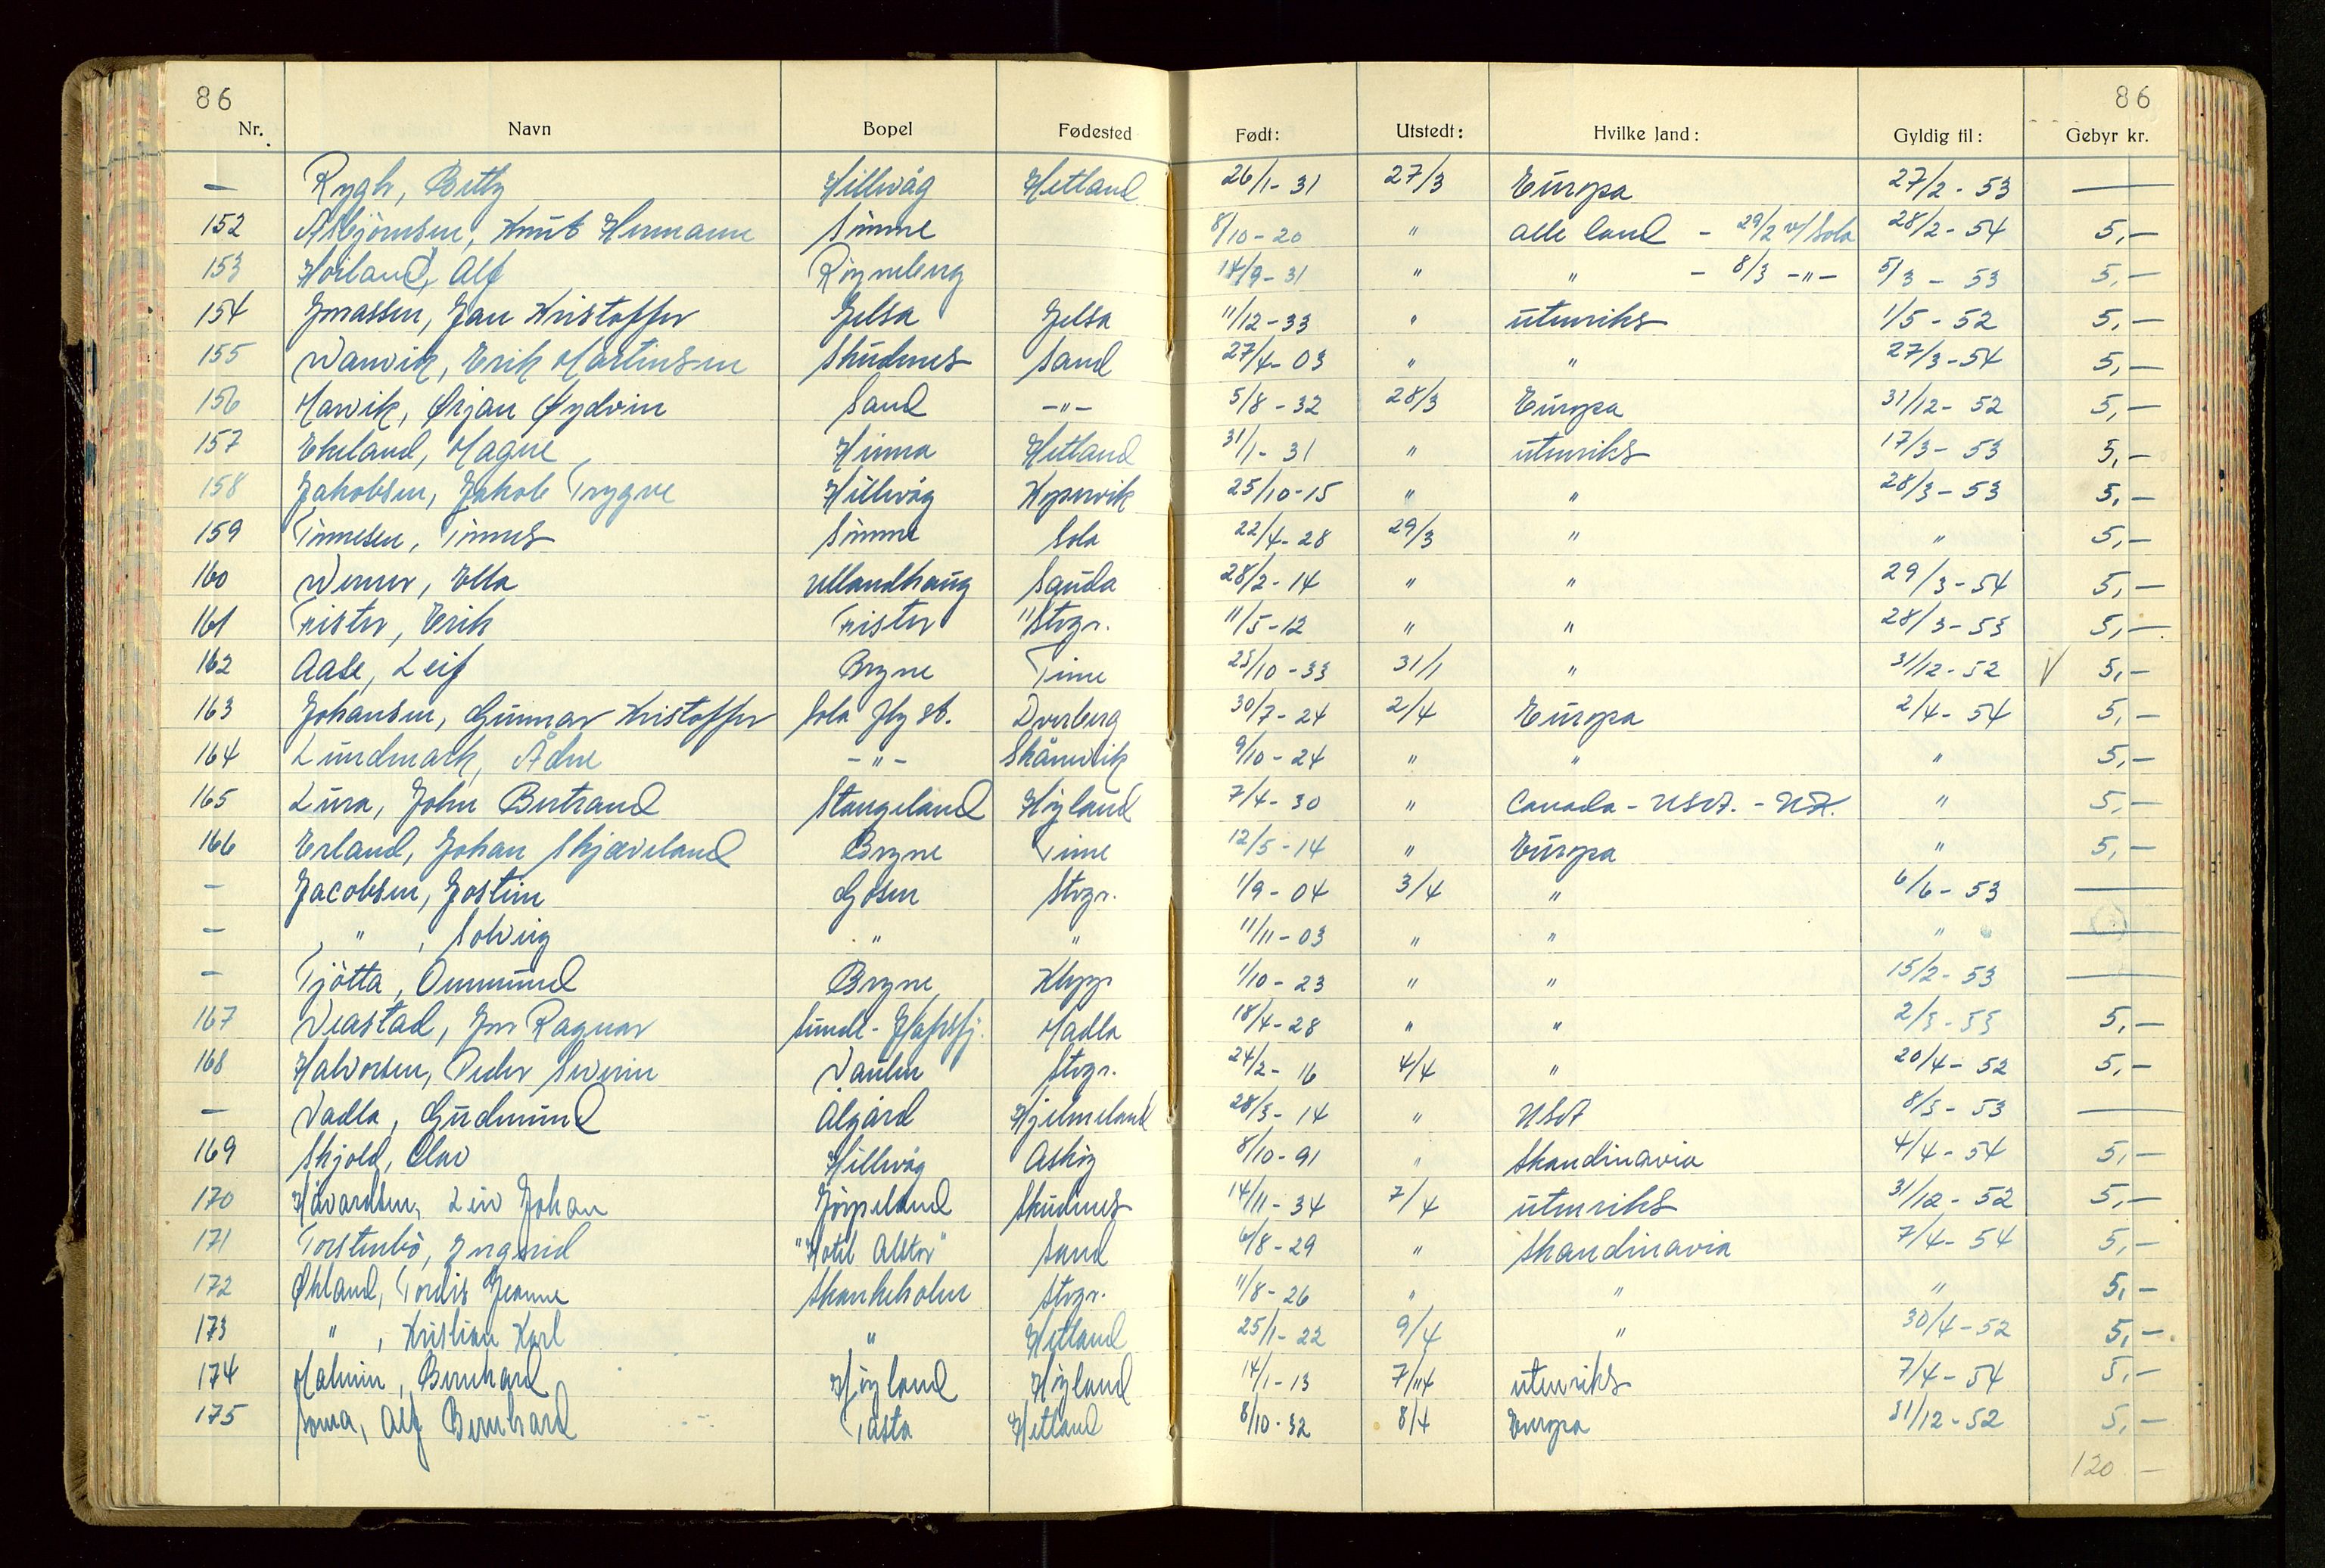 86 86
Nr. Navn Bopel Fødested Født: Utstedt: Hvilke land: Gyldig til: Gebyr kr.
— Rygh, Betty Hillevåg Hetland 26/1-31 27/3 Europa 27/2-53 —
152 Asbjörnsen, Knut Hermann Sunne 8/10-20 " alle land - 29/2 v/Sola 28/2-54 5,-
153 Horland, Alf Röyneberg 14/9-31 " " - 8/3 -"- 5/3-53 5,-
154 Jonassen, Jan Kristoffer Jelsa Jelsa 11/12-33 " utenriks 1/5-52 5,-
155 Wanvik, Erik Martinsen Skudenes Sand 27/4-03 " " 27/3-54 5,-
156 Marvik, Ørjan Øydvin Sand -"- 5/8-32 28/3 Europa 31/12-52 5,-
157 Ekeland, Magne Hinna Hetland 31/1-31 " utenriks 17/3-53 5,-
158 Jakobsen, Jakob Trygve Hillevåg Kopervik 25/10-15 " " 28/3-53 5,-
159 Tinnesen, Tinnes Sömme Sola 22/4-28 29/3 " " 5,-
160 Werner, Ella Ullandhaug Sauda 28/2-14 " " 29/3-54 5,-
161 Fister, Erik Fister "Stvgr. 11/5-12 " " 28/3-53 5,-
162 Aase, Leif Bryne Time 25/10-33 31/1 " 31/12-52 V 5,-
163 Johansen, Gunnar Kristoffer Sola fly st. Dverberg 30/7-24 2/4 Europa 2/4-54 5,-
164 Lundmark, Ådne -"- Skånevik 9/10-24 " " " 5,-
165 Lura, John Bertrand Stangeland Höyland 7/4-30 " Canada - USA. - " 5,-
166 Erland, Johan Skjæveland Bryne Time 12/5-14 " Europa " 5,-
- Jacobsen, Jostein Gosen Stvgr. 1/9-04 3/4 " 6/6-53 —
- , " , Solveig " " 11/11-03 " " " —
- Tjötta, Ommund Bryne Klepp 1/10-23 " " 15/2-53 —
167 Veastad, Jon Ragnar Sunde - Hafrsfj. Madla 18/4-28 " " 2/3-53 5,-
168 Halvorsen, Peder Severin Vaulen Stvgr. 24/2-16 4/4 " 20/4-52 5,-
— Vadla, Gudmund Ålgård Hjelmeland 28/3-14 " USA 8/3-53 —
169 Skjold, Olav Hillevåg Asköy 8/10-91 " Skandinavia 4/4-54 5,-
170 Håvardsen, Leiv Johan Jörpeland Skudenes 14/11-34 7/4 utenriks 31/12-52 5,-
171 Torstenbö, Ingrid "Hotel Alstor" Sand 6/8-29 " Skandinavia 7/4-54 5,-
172 Økland, Tordis Jeanne Skankeholm Stvgr. 11/8-26 " " " 5,-
173 " , Kristian Karl " Hetland 25/1-22 9/4 " 30/4-52 5,-
174 Malmin, Bernhard Höyland Höyland 14/1-13 7/4 utenriks 7/4-54 5,-
175 Soma, Alf Bernhard Tasta Hetland 8/10-32 8/4 Europa 31/12-52 5,-
120 -